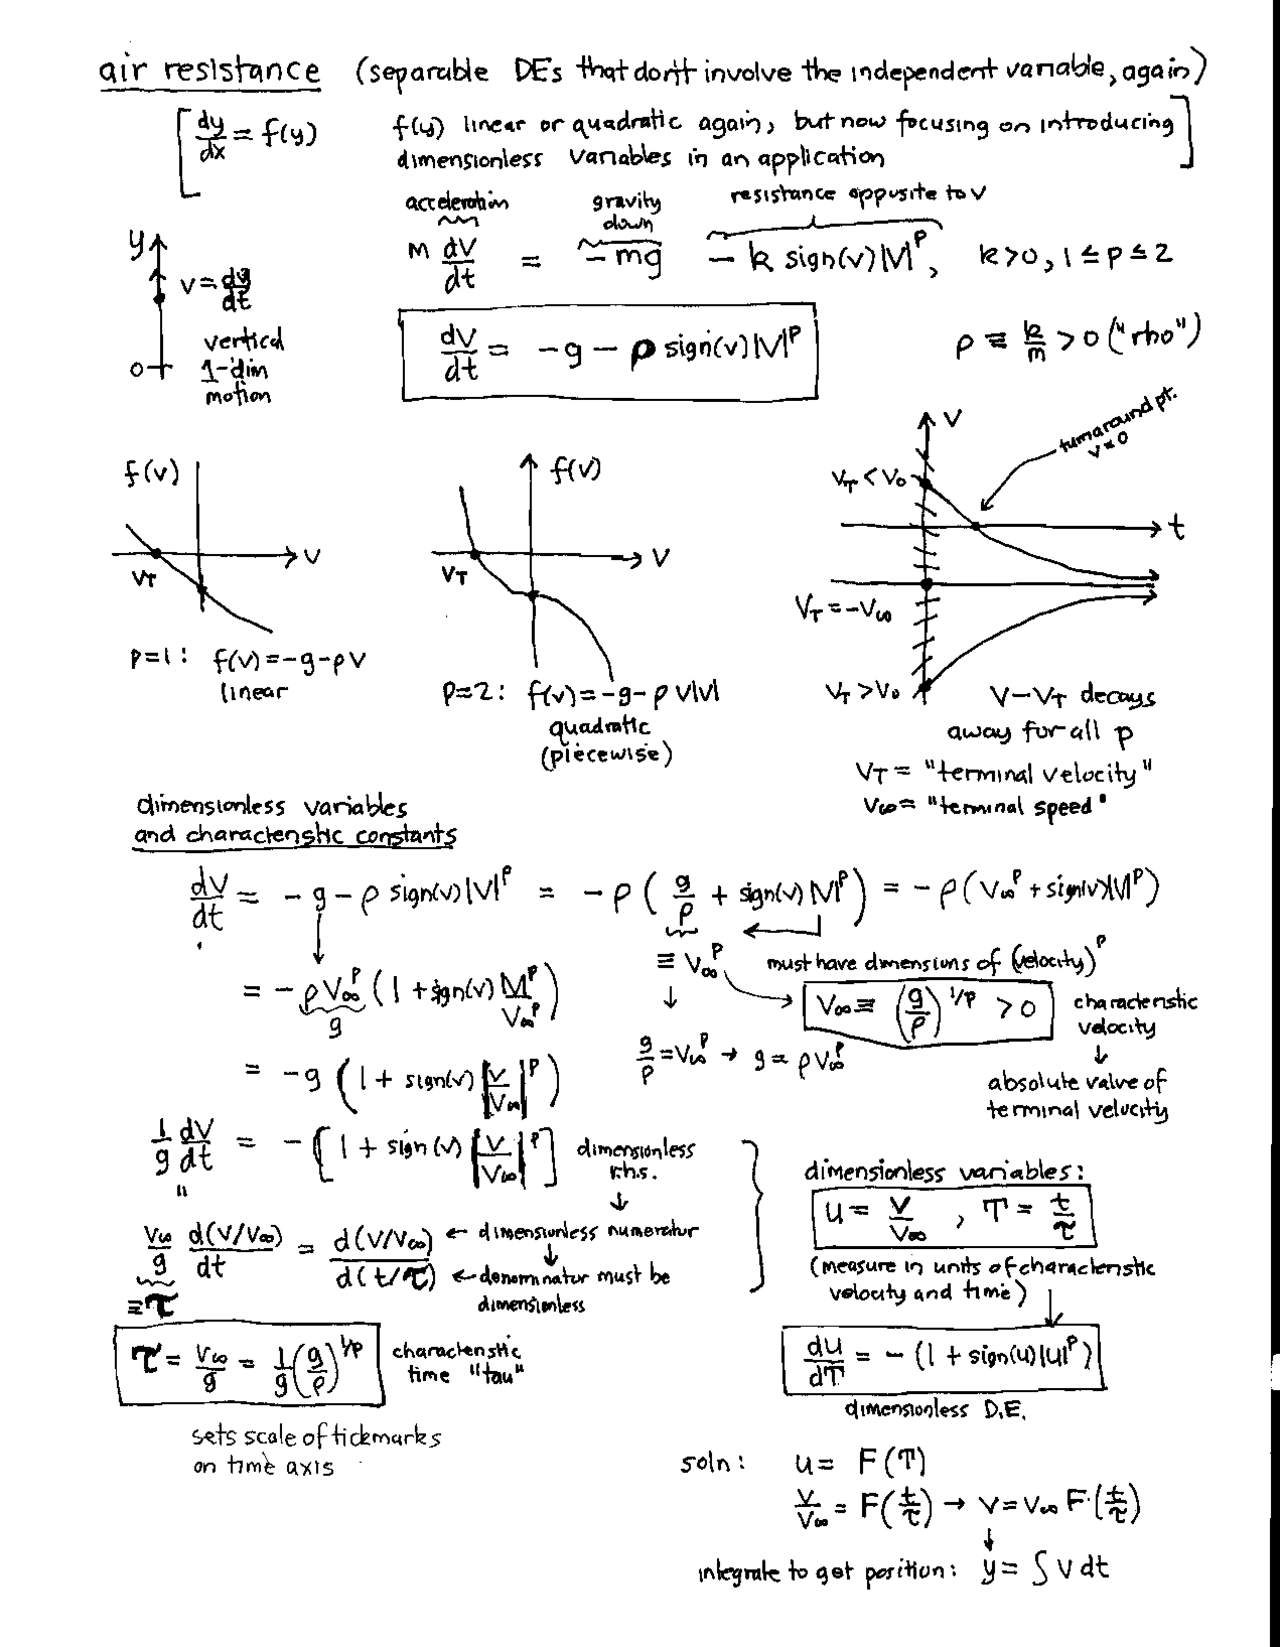 air resistance (separable DEs that don't involve the independent variable, again)
[ dy/dx = f(y) f(y) linear or quadratic again, but now focusing on introducing
dimensionless variables in an application ]
acceleration gravity down resistance opposite to v
m dv/dt = -mg - k sign(v)|v|^p, k>0, 1≤p≤2
y
v = dy/dt
0
vertical
1-dim
motion
dv/dt = -g - ρ sign(v)|v|^p
ρ ≡ k/m > 0 ("rho")
f(v)
v
V_T
p=1: f(v) = -g-ρv
linear
f(v)
v
V_T
p=2: f(v) = -g-ρ v|v|
quadratic
(piecewise)
v
turnaround pt.
v=0
V_T < V_0
t
V_T = -V_∞
V_T > V_0
V-V_T decays
away for all p
V_T = "terminal velocity"
V_∞ = "terminal speed"
dimensionless variables
and characteristic constants
dv/dt = -g - ρ sign(v)|v|^p = -ρ ( g/ρ + sign(v)|v|^p ) = -ρ(V_∞^p + sign(v)|v|^p)
≡ V_∞^p must have dimensions of (velocity)^p
= -ρV_∞^p (1 + sign(v) |v|^p/V_∞^p)
g
V_∞ ≡ (g/ρ)^1/p > 0 characteristic
velocity
g/ρ = V_∞^p → g = ρV_∞^p
↓
absolute value of
terminal velocity
= -g (1 + sign(v) |v/V_∞|^p)
1/g dv/dt = -[1 + sign(v) |v/V_∞|^p] dimensionless
r.h.s.
"
V_∞/g d(v/V_∞)/dt = d(v/V_∞)/d(t/τ) ← dimensionless numerator
← denominator must be
dimensionless
≡ τ
τ = V_∞/g = 1/g (g/ρ)^1/p characteristic
time "tau"
sets scale of tickmarks
on time axis
dimensionless variables:
u = v/V_∞ , T = t/τ
(measure in units of characteristic
velocity and time)
du/dT = -(1 + sign(u)|u|^p)
dimensionless D.E.
soln: u = F(T)
v/V_∞ = F(t/τ) → v = V_∞ F(t/τ)
↓
integrate to get position: y = ∫ v dt